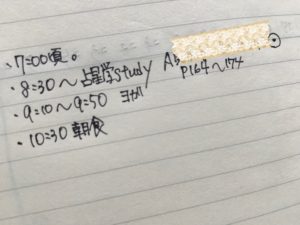 ・7:00頃。
・8:30〜占星学study As
P164〜174
・9:10〜9:50 ヨガ
・10:30 朝食